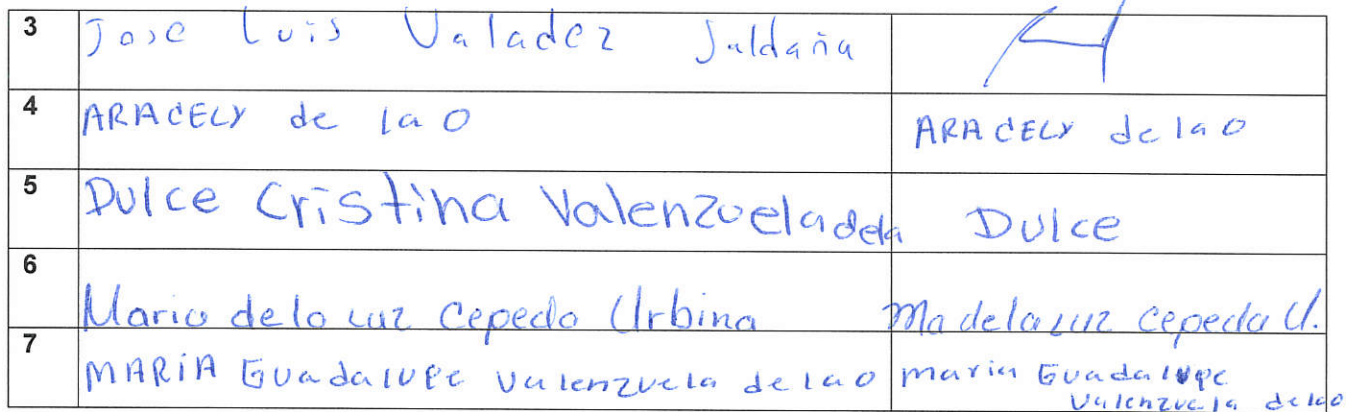 3 Jose Luis Valadez Saldaña
4 ARACELY de la O ARACELY de la O
5 Dulce Cristina Valenzuela dela Dulce
6 Maria de la Luz Cepeda Urbina Ma de la Luz Cepeda U.
7 MARIA Guadalupe Valenzuela de la O maria Guadalupe
Valenzuela de la O